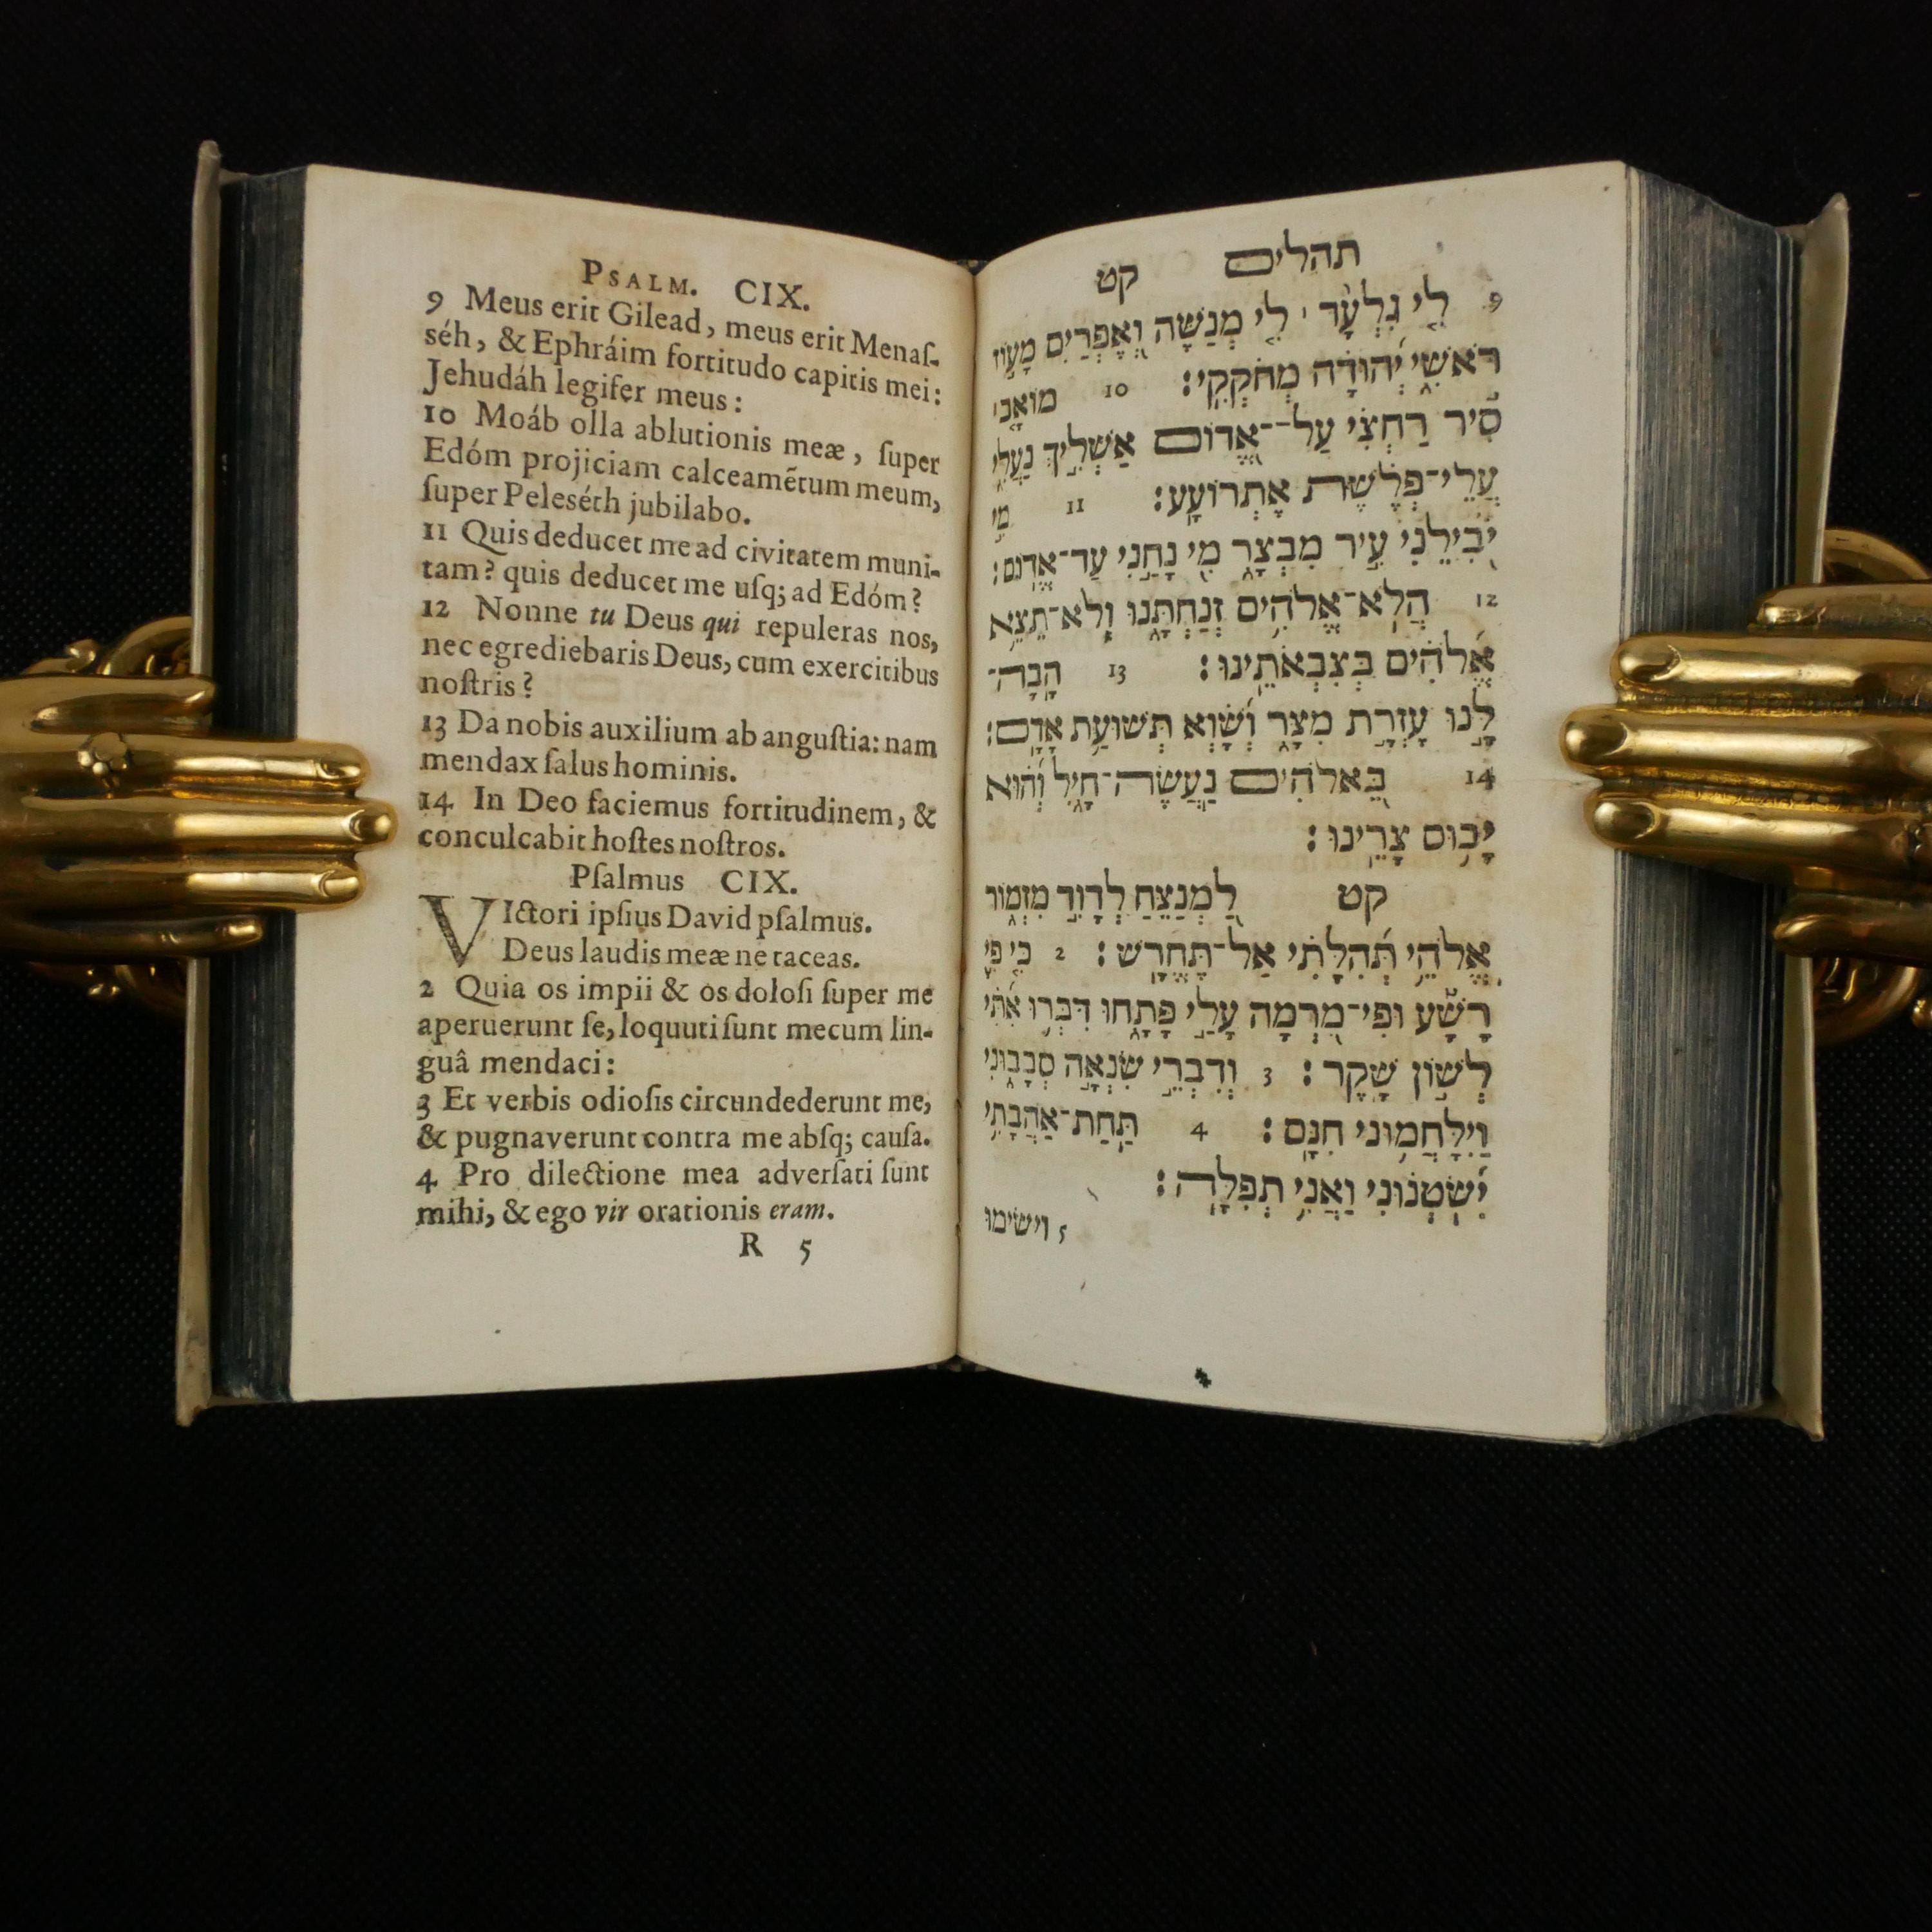 PSALM. CIX.
9 Meus erit Gilead, meus erit Menaſ-
séh, & Ephráim fortitudo capitis mei:
Jehudáh legifer meus:
10 Moáb olla ablutionis meæ, ſuper
Edóm projiciam calceamẽtum meum,
ſuper Peleséth jubilabo.
11 Quis deducet me ad civitatem muni-
tam? quis deducet me uſq; ad Edóm?
12 Nonne tu Deus qui repuleras nos,
nec egrediebaris Deus, cum exercitibus
noſtris?
13 Da nobis auxilium ab anguſtia: nam
mendax ſalus hominis.
14 In Deo faciemus fortitudinem, &
conculcabit hoſtes noſtros.
Pſalmus CIX.
VIctori ipſius David pſalmus.
Deus laudis meæ ne taceas.
2 Quia os impii & os doloſi ſuper me
aperuerunt ſe, loquuti ſunt mecum lin-
guâ mendaci:
3 Et verbis odioſis circundederunt me,
& pugnaverunt contra me abſq; cauſa.
4 Pro dilectione mea adverſati ſunt
mihi, & ego vir orationis eram.
R 5
תהלים קט
9 לִ֤י גִלְעָ֨ד ׀ לִ֤י מְנַשֶּׁ֗ה וְ֭אֶפְרַיִם מָע֣וֹז
רֹאשִׁ֑י יְ֝הוּדָ֗ה מְחֹקְקִֽי׃ 10 מוֹאָ֤ב ׀
סִ֬יר רַחְצִ֗י עַל־־אֱ֭דוֹם אַשְׁלִ֣יךְ נַעֲלִ֑י
עֲלֵי־פְ֝לֶ֗שֶׁת אֶתְרוֹעָֽע׃ 11 מִ֣י
יֹ֭בִלֵנִי עִ֣יר מִבְצָ֑ר מִ֖י נָחַ֣נִי עַד־אֱדֽוֹם׃
12 הֲלֹֽא־אֱלֹהִ֥ים זְנַחְתָּ֑נוּ וְֽלֹא־תֵצֵ֥א
אֱ֝לֹהִ֗ים בְּצִבְאֹתֵֽינוּ׃ 13 הָֽבָה־
לָּ֣נוּ עֶזְרָ֣ת מִצָּ֑ר וְ֝שָׁ֗וְא תְּשׁוּעַ֥ת אָדָֽם׃
14 בֵּֽאלֹהִ֥ים נַעֲשֶׂה־חָ֑יִל וְ֝ה֗וּא
יָב֥וּס צָרֵֽינוּ׃
קט לַ֭מְנַצֵּחַ לְדָוִ֣ד מִזְמ֑וֹר
אֱלֹהֵ֥י תְ֝הִלָּתִ֗י אַֽל־תֶּחֱרַֽשׁ׃ 2 כִּ֤י פִ֪י
רָשָׁ֡ע וּֽפִי־מִ֭רְמָה עָלַ֣י פָּתָ֑חוּ דִּבְּר֥וּ אִ֝תִּ֗י
לְשׁ֣וֹן שָֽׁקֶר׃ 3 וְדִבְרֵ֣י שִׂנְאָ֣ה סְבָב֑וּנִי
וַיִּֽלָּחֲמ֥וּנִי חִנָּֽם׃ 4 תַּֽחַת־אַהֲבָתִ֥י
יִ֝שְׂטְנ֗וּנִי וַאֲנִ֥י תְפִלָּֽה׃
5 וישימו